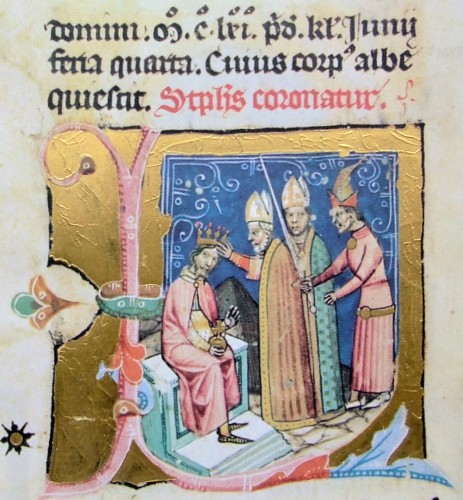 domini. Mͦ. Cͦ. lxi. pͦd. klꝰ. Junij
feria quarta. Cuius corpꝰ albe
quiescit. Stphs coronatur.